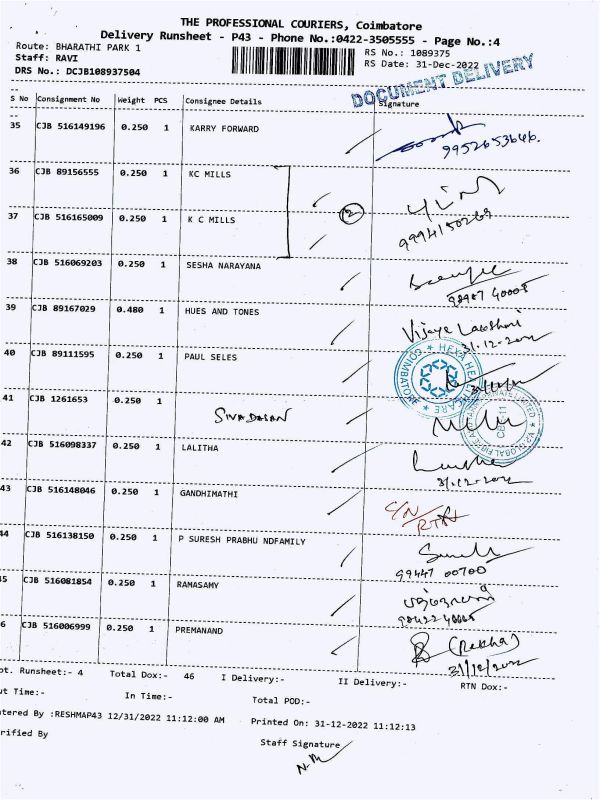 THE PROFESSIONAL COURIERS, Coimbatore
Delivery Runsheet - P43 - Phone No.:0422-3505555 - Page No.:4
Route: BHARATHI PARK 1 RS No.: 1089375
Staff: RAVI RS Date: 31-Dec-2022
DRS No.: DCJB108937504
DOCUMENT DELIVERY
S No Consignment No Weight PCS Consignee Details Signature
35 CJB 516149196 0.250 1 KARRY FORWARD
9952653646.
36 CJB 89156555 0.250 1 KC MILLS
2
37 CJB 516165009 0.250 1 K C MILLS
9994150269
38 CJB 516069203 0.250 1 SESHA NARAYANA
98987 40008
39 CJB 89167029 0.480 1 HUES AND TONES
Vijaya Lakshmi
31.12-2022
40 CJB 89111595 0.250 1 PAUL SELES
41 CJB 1261653 0.250 1 SIVADASAN
42 CJB 516098337 0.250 1 LALITHA
31.12-2022
43 CJB 516148046 0.250 1 GANDHIMATHI
C/N
RTN
44 CJB 516138150 0.250 1 P SURESH PRABHU NDFAMILY
99447 00700
45 CJB 516081854 0.250 1 RAMASAMY
6 CJB 516006999 0.250 1 PREMANAND
(Rekha)
31/12/2022
ot. Runsheet:- 4 Total Dox:- 46 I Delivery:- II Delivery:- RTN Dox:-
ut Time:- In Time:- Total POD:-
tered By :RESHMAP43 12/31/2022 11:12:00 AM Printed On: 31-12-2022 11:12:13
rified By
Staff Signature